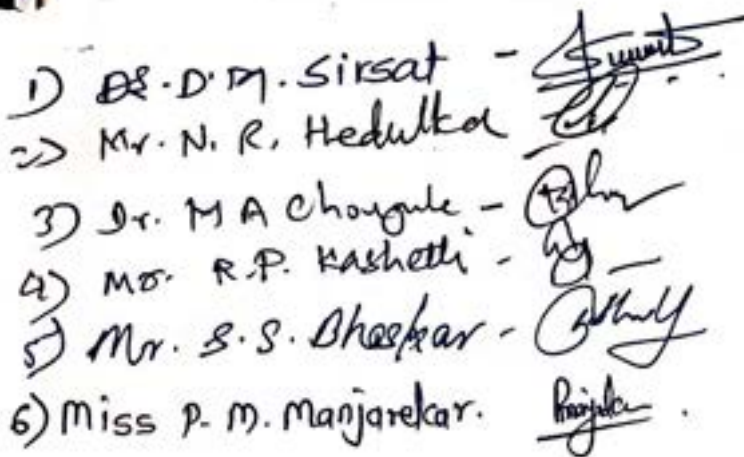 1) Dr. D. M. Sirsat -
2) Mr. N. R. Hedulkar
3) Dr. M A Chougule -
4) Mr. R.P. Kashetti -
5) Mr. S. S. Bhaskar -
6) Miss P. M. Manjarekar.